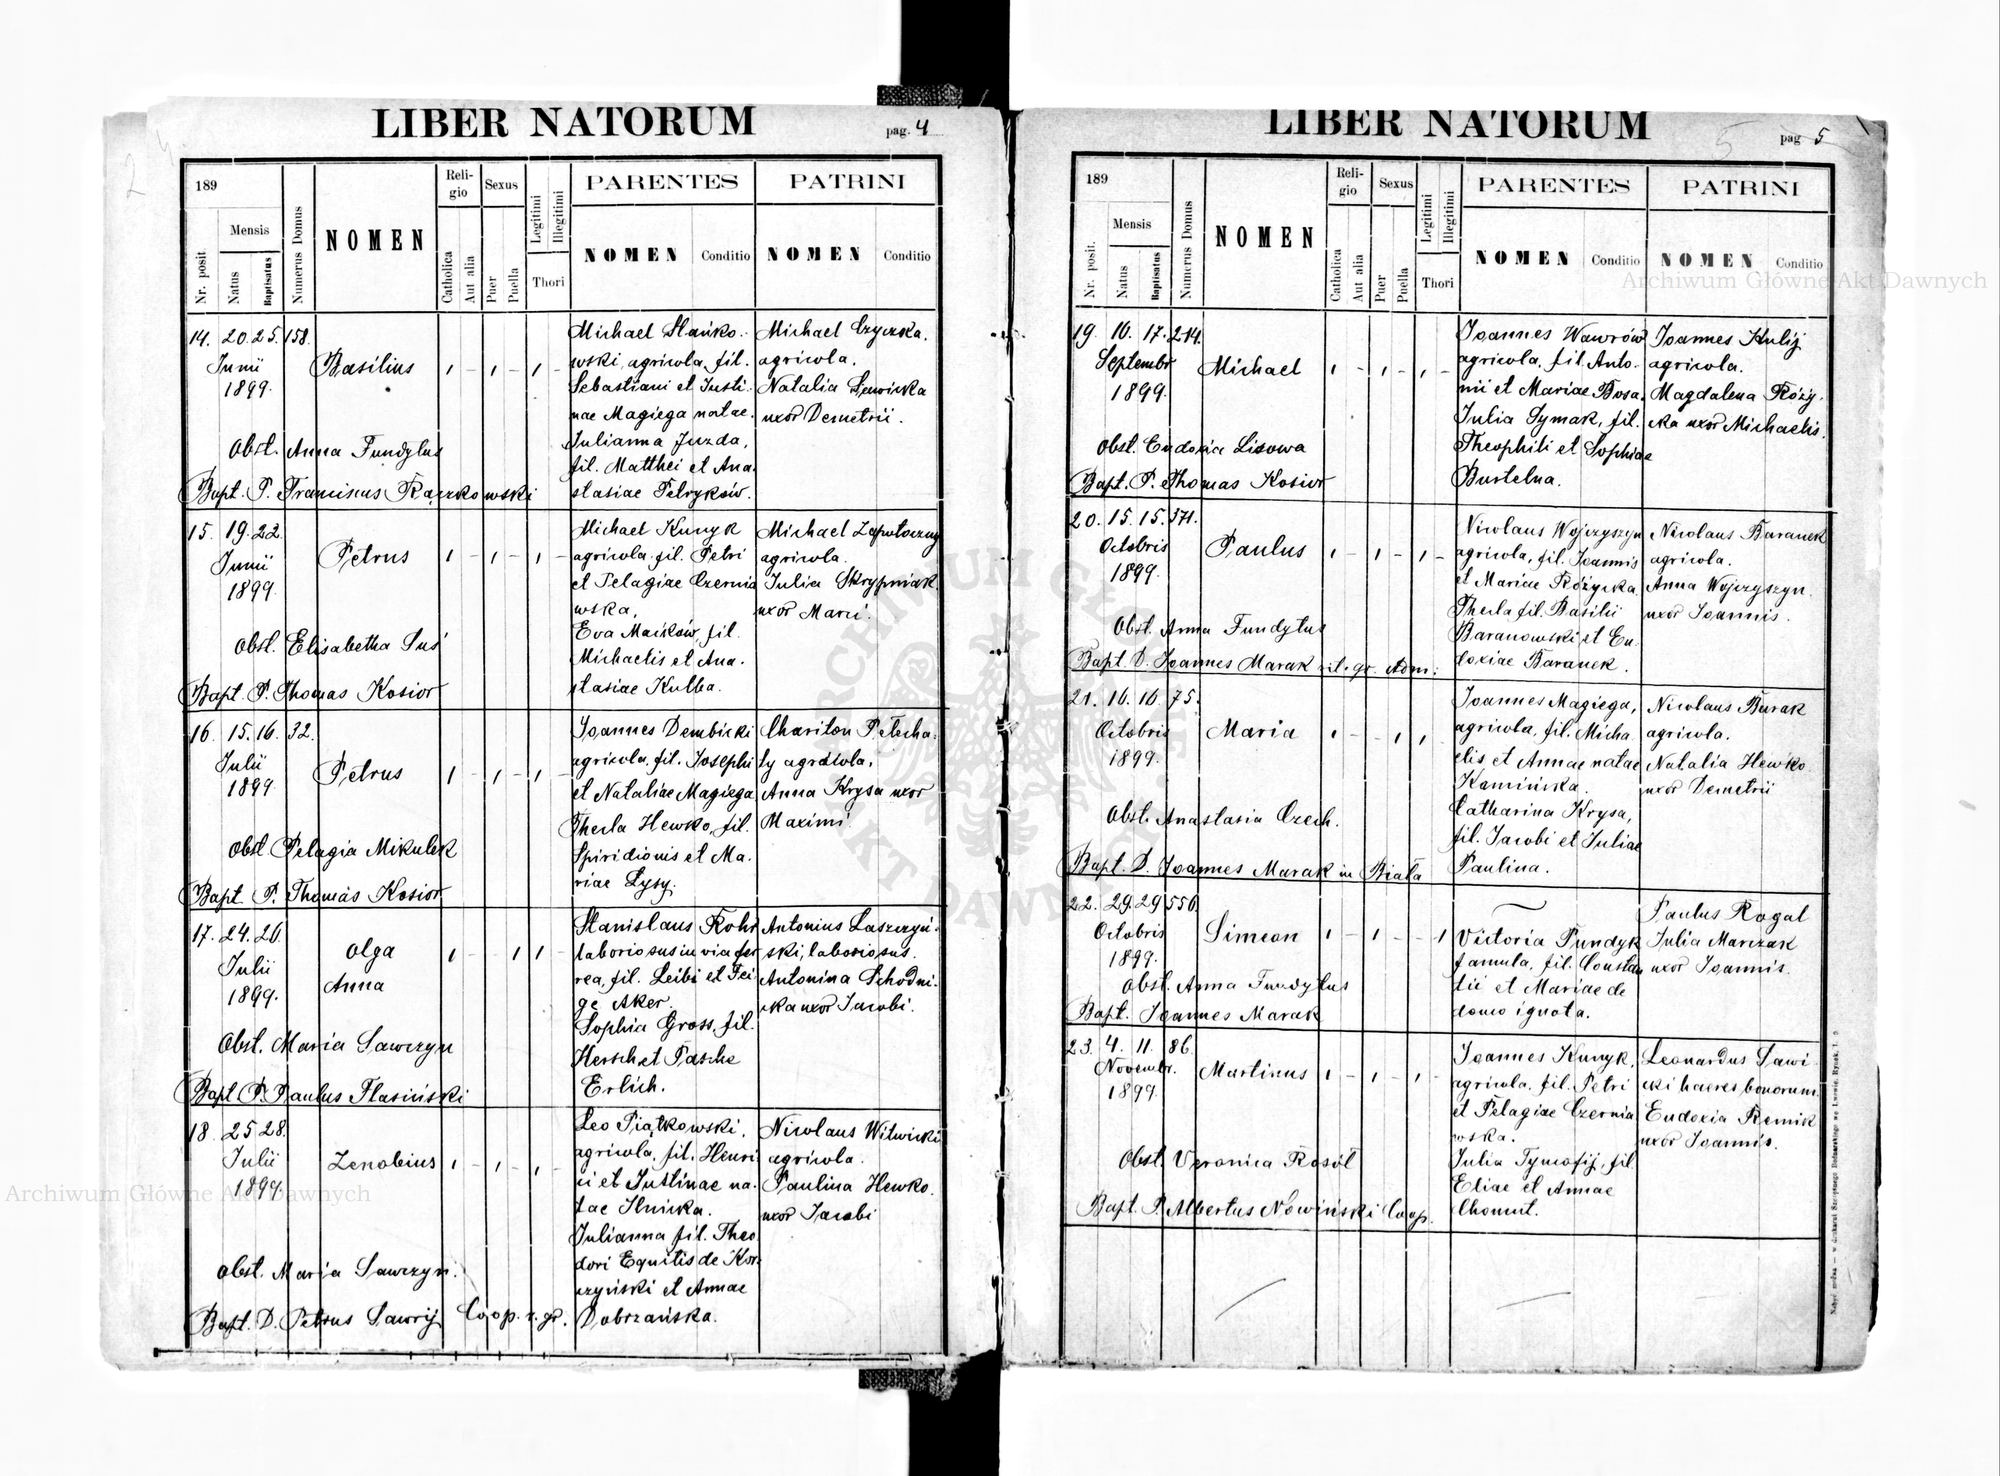 LIBER NATORUM
pag. 4
189
Nr. posit.
Mensis
Natus
Baptisatus
Numerus Domus
NOMEN
Religio
Catholica
Aut alia
Sexus
Puer
Puella
Legitimi
Illegitimi
Thori
PARENTES
NOMEN Conditio
PATRINI
NOMEN Conditio
14. 20. 25. 158.
Junii
1899.
Basilius
Michael Stańko-
wski, agricola, fil.
Sebastiani et Justi-
nae Magiega natae.
Julianna Juzda,
fil. Matthei et Ana-
stasiae Petryków.
Michael Czyczka.
agricola.
Natalia Lewicka
uxor Demetrii.
Obst. Anna Fundytus
Bapt. P. Franciscus Rączkowski
15. 19. 22.
Junii
1899.
Petrus
Michael Kunyk
agricola. fil. Petri
et Pelagiae Czernia
wska.
Eva Maików, fil.
Michaelis et Ana-
stasiae Kulba.
Michael Zapotoczny
agricola.
Julia Skrypniak
uxor Marci.
Obst. Elisabetha Suś
Bapt. P. Thomas Kosior
16. 15. 16. 32.
Julii
1899.
Petrus
Joannes Dembicki
agricola, fil. Josephi
et Nataliae Magiega
Thecla Hewko, fil.
Spiridionis et Ma-
riae Lysy.
Chariton Petecha-
ly agricola.
Anna Krysa uxor
Maximi
Obst. Pelagia Mikulek
Bapt. P. Thomas Kosior
17. 24. 26.
Julii
1899.
Olga
Anna
Stanislaus Rohr
laboriosus in via fer
rea, fil. Leibi et Fei
ge Aker.
Sophia Gross, fil.
Hersch et Pasche
Erlich.
Antonius Laszczyń-
ski, laboriosus.
Antonina Schodni-
cka uxor Jacobi.
Obst. Maria Sawczyn
Bapt. P. Paulus Flasiński
18. 25 28.
Julii
1899
Zenobius
Leo Piątkowski,
agricola, fil. Henri
ci et Justinae na-
tae Ilnicka.
Julianna fil. Theo
dori Equitis de Kor-
czyński et Annae
Dobrzańska.
Nicolaus Witwicki
agricola.
Paulina Hewko.
uxor Jacobi
Obst. Maria Sawczyn.
Bapt. D. Petrus Sawczij Coop. r. gr.
LIBER NATORUM
pag 5
189
Nr. posit.
Mensis
Natus
Baptisatus
Numerus Domus
NOMEN
Religio
Catholica
Aut alia
Sexus
Puer
Puella
Legitimi
Illegitimi
Thori
PARENTES
NOMEN Conditio
PATRINI
NOMEN Conditio
19. 16. 17. 214.
Septembr
1899.
Michael
Joannes Wawrów
agricola, fil. Anto-
nii et Mariae Bosa.
Julia Symak, fil.
Theophili et Sophiae
Burtelna.
Joannes Kulij
agricola.
Magdalena Róży-
cka uxor Michaelis.
Obst. Eudoxia Lisowa
Bapt. P. Thomas Kosior
20. 15. 15. 371.
Octobris
1899.
Paulus
Nicolaus Wojczyszyn
agricola, fil. Joannis
et Mariae Różycka
Thecla fil. Basilii
Baranowski et Eu-
doxiae Baranek.
Nicolaus Baranek
agricola.
Anna Wojczyszyn.
uxor Joannis.
Obst. Anna Fundytus
Bapt. D. Joannes Marak rit. gr. Adm.
21. 16. 16. 75.
Octobris
1899.
Maria
Joannes Magiega,
agricola, fil. Micha-
elis et Annae natae
Kamińska.
Catharina Krysa,
fil. Jacobi et Juliae
Paulina.
Nicolaus Burak
agricola.
Natalia Hewko
uxor Demetrii
Obst. Anastasia Czech.
Bapt. D. Joannes Marak in Biała
22. 29. 29 556.
Octobris
1899.
Simeon
Victoria Fundyk
famula, fil. Constan
tii et Mariae de
domo ignota.
Paulus Rogal
Julia Marczak
uxor Joannis.
Obst. Anna Fundytus
Bapt. Joannes Marak
23. 4. 11. 86.
Novembr.
1899.
Martinus
Joannes Kunyk,
agricola, fil. Petri
et Pelagiae Czernia
wska.
Julia Tymofij, fil.
Eliae et Annae
Chomut.
Leonardus Sawi-
cki haeres bonorum.
Eudoxia Remik
uxor Joannis.
Obst. Veronica Rosół
Bapt. P. Albertus Nowiński Coop.
Archiwum Główne Akt Dawnych
Archiwum Główne Akt Dawnych
ARCHIWUM GŁÓWNE AKT DAWNYCH